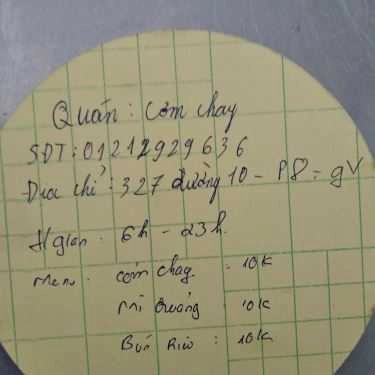 Quán: Cơm chay
SĐT: 01212929636
Địa chỉ: 327 đường 10 - P8 - gV
Tgian: 6h - 23h.
Menu: cơm chay: 10k
Mì Quảng: 10k
Bún Riêu: 10k